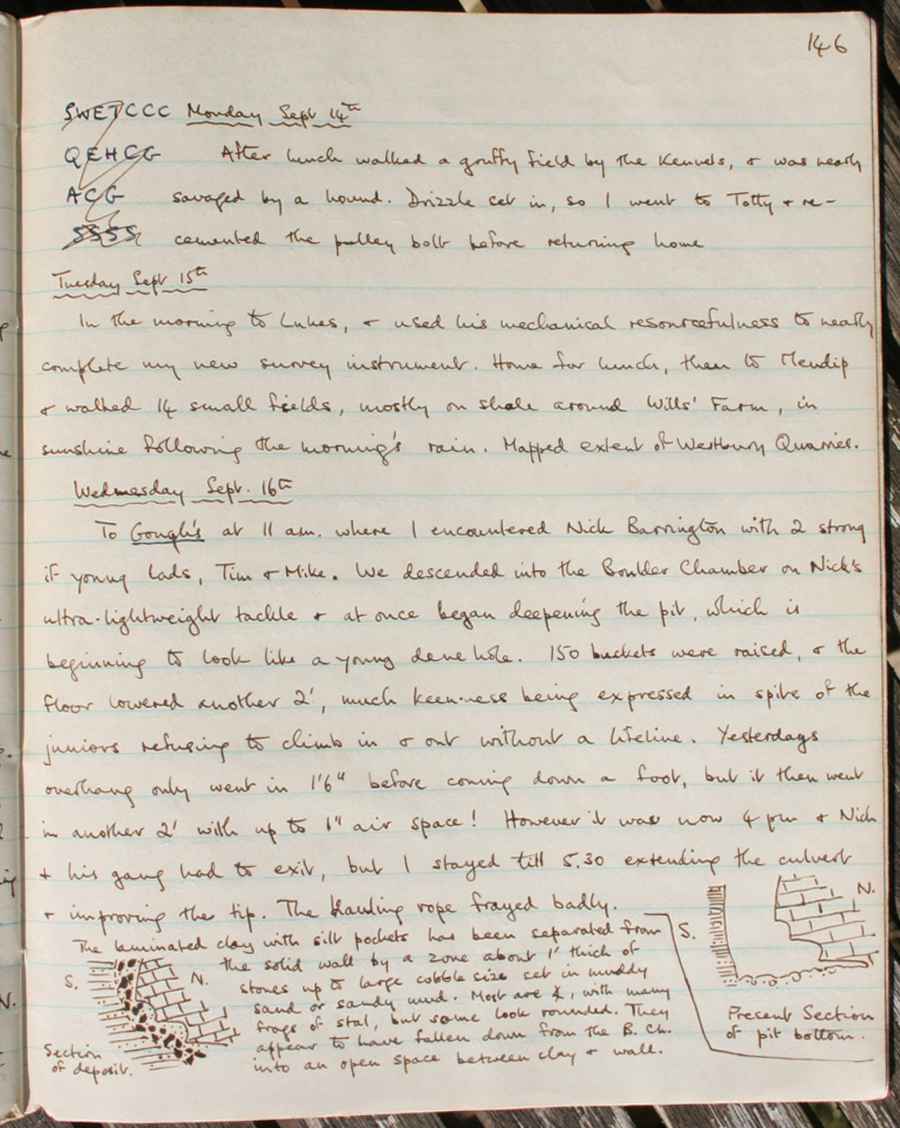 146
SWETCCC Monday Sept 14th
QEHCG After lunch walked a gruffy field by the Kennels, & was nearly
ACG savaged by a hound. Drizzle set in, so I went to Totty & re-
SSSS cemented the pulley bolt before returning home
Tuesday Sept 15th
In the morning to Lukes, & used his mechanical resourcefulness to nearly
complete my new survey instrument. Home for lunch, then to Mendip
& walked 14 small fields, mostly on shale around Wills' Farm, in
sunshine following the morning's rain. Mapped extent of Westbury Quarries.
Wednesday Sept. 16th
To Gough's at 11 am. where I encountered Nick Barrington with 2 strong
if young lads, Tim & Mike. We descended into the Boulder Chamber on Nick's
ultra-lightweight tackle & at once began deepening the pit, which is
beginning to look like a young dene hole. 150 buckets were raised, & the
floor lowered another 2', much keen-ness being expressed in spite of the
juniors refusing to climb in & out without a lifeline. Yesterdays
overhang only went in 1'6" before coming down a foot, but it then went
in another 2' with up to 1" air space! However it was now 4 pm & Nick
& his gang had to exit, but I stayed till 5.30 extending the culvert
& improving the tip. The hauling rope frayed badly.
The laminated clay with silt pockets has been separated from
the solid wall by a zone about 1' thick of
stones up to large cobble size set in muddy
sand or sandy mud. Most are, with many
frags of stal, but some look rounded. They
appear to have fallen down from the B. Ch.
into an open space between clay & wall.
S. N.
Section
of deposit.
S. N.
Present Section
of pit bottom.